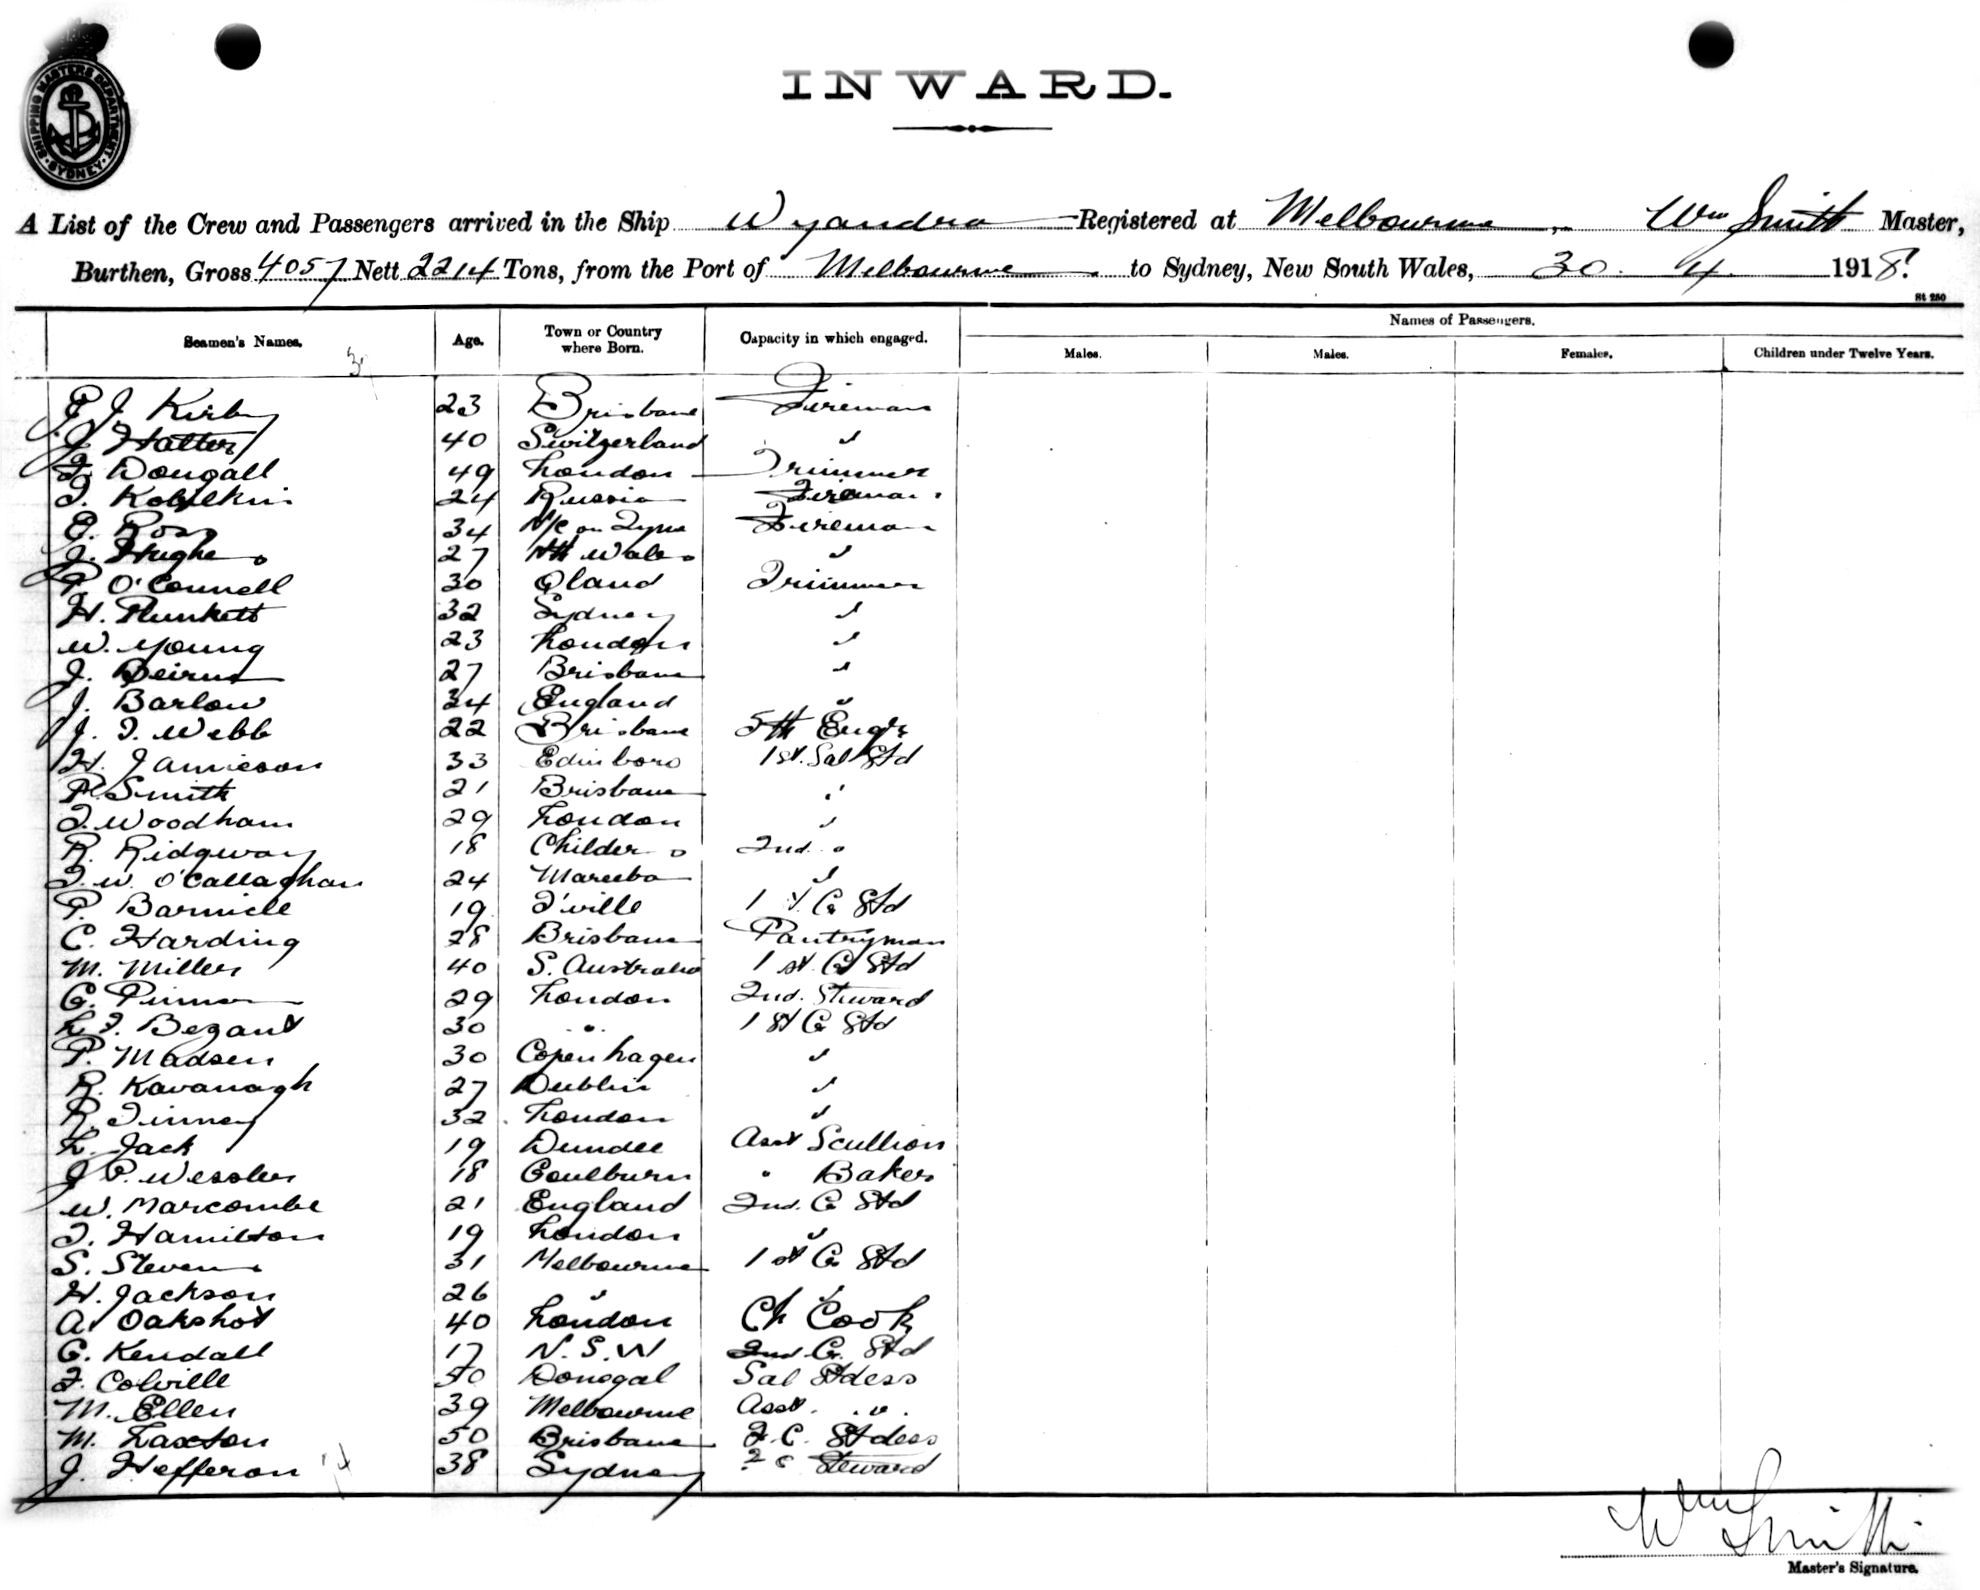 SHIPPING MASTERS DEPARTMENT · SYDNEY ·
INWARD.
A List of the Crew and Passengers arrived in the Ship Wyandra Registered at Melbourne, Wm Smith Master,
Burthen, Gross 4057 Nett 2214 Tons, from the Port of Melbourne to Sydney, New South Wales, 30. 4 1918.
St 250
Seamen's Names. Age. Town or Country where Born. Capacity in which engaged. Names of Passengers.
Males. Males. Females. Children under Twelve Years.
E J Kirby 23 Brisbane Fireman
J Hatter 40 Switzerland "
F. Dougall 49 London Trimmer
T. Kobelkin 24 Russia Fireman
E. Ross 34 N/C on Tyne Fireman
J. Hughes 27 Nth Wales "
P O'Connell 30 Qland Trimmer
H. Plunkett 32 Sydney "
W. Young 23 London "
J. Beirne 27 Brisbane "
J. Barlow 34 England "
J. T. Webb 22 Brisbane 5th Engr
H. Jamieson 33 Edinboro 1st. Sal Std
P. Smith 21 Brisbane "
T. Woodham 29 London "
R. Ridgway 18 Childers 2nd. "
T. W. O'Callaghan 24 Mareeba "
P. Barnicle 19 T'ville 1st C Std
C. Harding 28 Brisbane Pantryman
M. Miller 40 S. Australia 1st. C Std
G. 29 London 2nd. Steward
L F. Bezant 30 " 1st C Std
P. Madsen 30 Copenhagen "
R. Kavanagh 27 Dublin "
R. Finney 32 London "
L. Jack 19 Dundee Asst Scullion
J P. Wessler 18 Goulburn " Baker
W. Marcombe 21 England 2nd. C Std
T. Hamilton 19 London "
S. Stevens 31 Melbourne 1st C Std
H. Jackson 26 " "
A. Oakshot 40 London Ch Cook
G. Kendall 17 N. S. W 2nd. C. Std
F. Colville 50 Donegal Sal Stdess
M. Ellen 39 Melbourne Asst. "
M. Laxton 50 Brisbane F. C. Stdess
J. Hefferon 38 Sydney 2 C Steward
Wm Smith
Master's Signature.